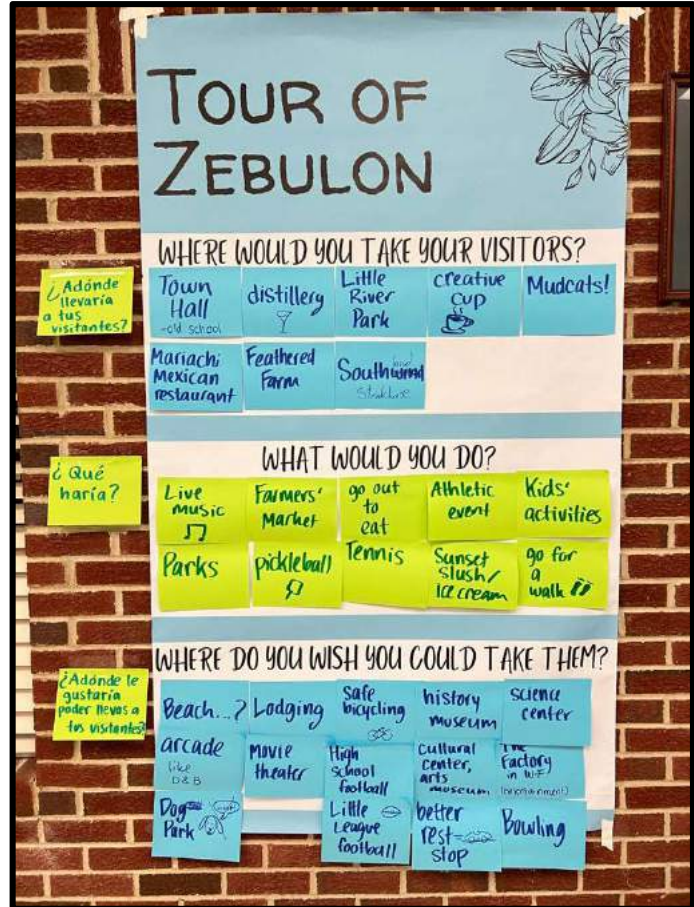 TOUR OF
ZEBULON
WHERE WOULD YOU TAKE YOUR VISITORS?
¿Adónde
llevaría
a tus
visitantes?
Town
Hall
-old school
distillery
Little
River
Park
creative
cup
Mudcats!
Mariachi
Mexican
restaurant
Feathered
Farm
WHAT WOULD YOU DO?
¿Qué
haría?
Live
music
Farmers'
Market
go out
to
eat
Athletic
event
Kids'
activities
Parks
pickleball
Tennis
Sunset
Slush/
ice cream
go for
a
walk
WHERE DO YOU WISH YOU COULD TAKE THEM?
¿Adónde le
gustaría
poder llevas a
tus visitantes?
Beach...?
Lodging
Safe
bicycling
history
museum
science
center
arcade
like
D&B
Movie
theater
High
School
football
cultural
center,
arts
museum
The
Factory
in W.F.
(entertainment)
Dog
Park
Little
League
football
better
rest
stop
Bowling